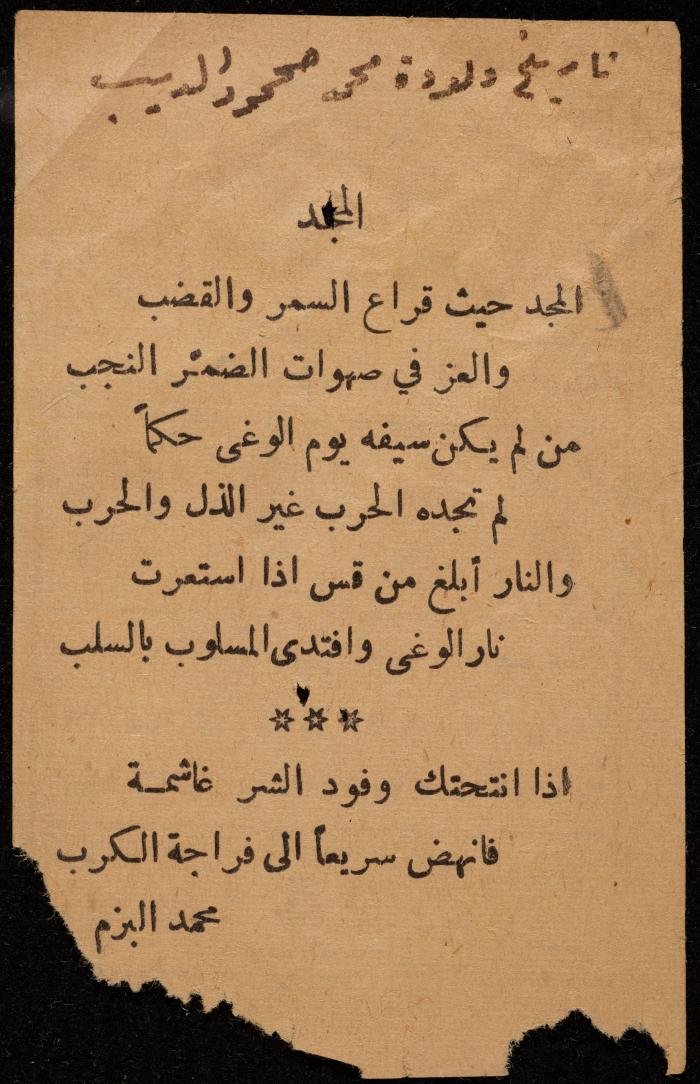 تاريخ ولادة محمد محمود الديب
المجد
المجد حيث قراع السمر والقضب
والعز في صهوات الضمّر النجب
من لم يكن سيفه يوم الوغى حكماً
لم تجده الحرب غير الذل والحرب
والنار أبلغ من قس اذا استعرت
نار الوغى وافتدى المسلوب بالسلب
***
اذا انتحتك وفود الشر غاشمـة
فانهض سريعاً الى فراجة الكرب
محمد البزم